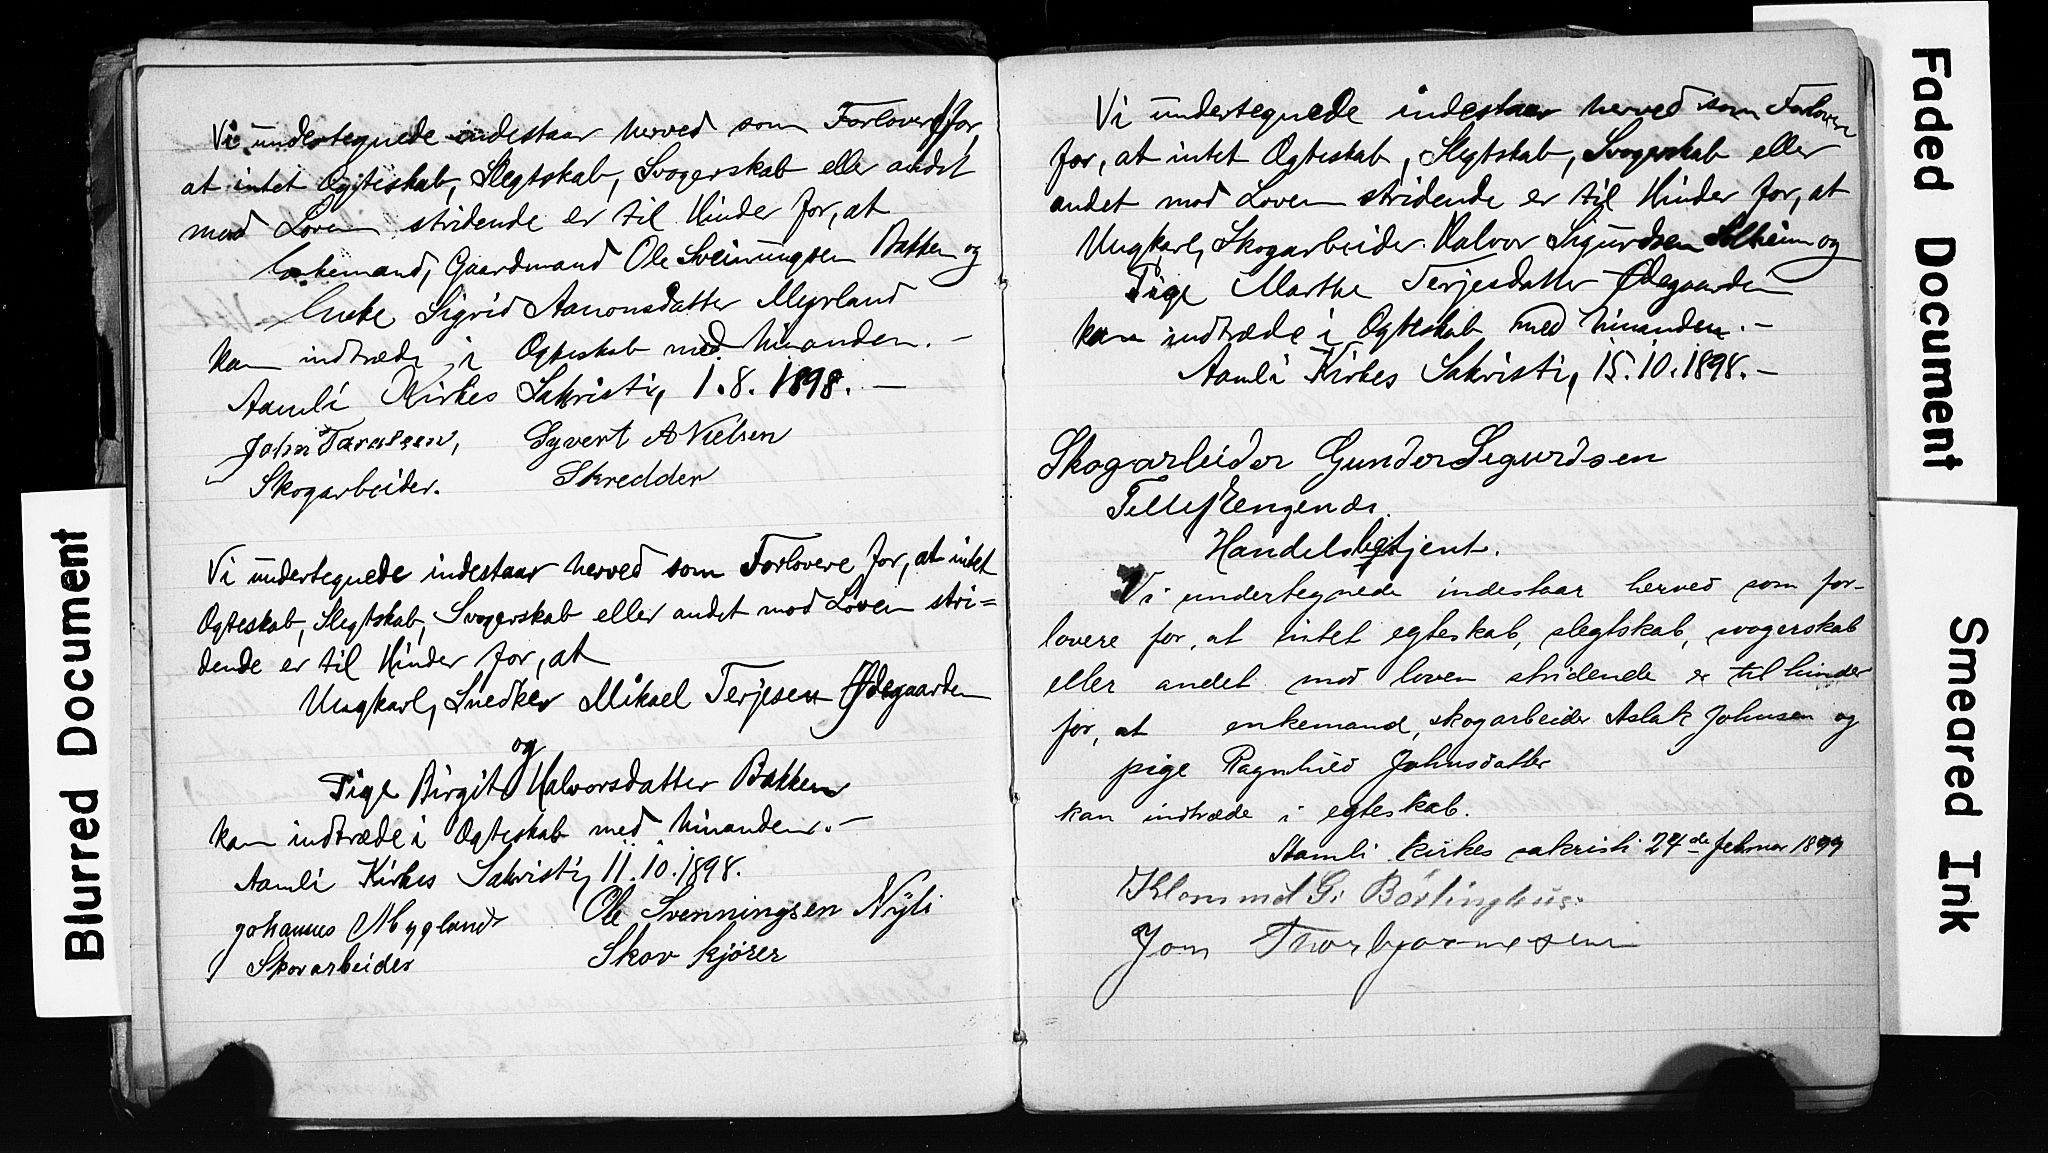 Vi undertegnede indestaar herved som Forlovere for,
at intet Ægteskab, Slegtskab, Svogerskab eller andet
mod Loven stridende er til Hinder for, at
Enkemand, Gaardmand Ole Sveinungsen Bakken og
Enke Sigrid Aanonsdatter Myrland
kan indtræde i Ægteskab med hinanden. –
Aamli Kirkes Sakristi, 1.8.1898. –
John Taraldsen, Syvert A Nielsen
Skogarbeider. Skredder
Vi undertegnede indestaar herved som Forlovere for, at intet
Ægteskab, Slegtskab, Svogerskab eller andet mod Loven stri=
dende er til Hinder for, at
Ungkarl, Snedker Mikael Terjesen Ødegaarden
og
Pige Birgit Halvorsdatter Bakken
kan indtræde i Ægteskab med hinanden. –
Aamli Kirkes Sakristi, 11.10.1898.
Johannes Mygland Ole Svenningsen Nyli
Skovarbeider Skov kjører
Vi undertegnede indestaar herved som Forlovere
for, at intet Ægteskab, Slegtskab, Svogerskab eller
andet mod Loven stridende er til Hinder for, at
Ungkarl, Skogarbeider Halvor Sigurdsen Solheim og
Pige Marthe Terjesdatter Ødegaarden
kan indtræde i Ægteskab med hinanden. –
Aamli Kirkes Sakristi, 15.10.1898. –
Skogarbeider Gunder Sigurdsen
Tellef Engende.
Handelsbetjent.
Vi undertegnede indestaar herved som for-
lovere for, at intet egteskab, slegtskab, svogerskab
eller andet mod loven stridende er til hinder
for, at enkemand, skogarbeider Aslak Johnsen og
pige Ragnhild Johnsdatter
kan indtræde i egteskab.
Aamli kirkes sakristi 24de februar 1899
G.
Jon Thorbjørnsen
Blurred Document
Faded Document
Smeared Ink